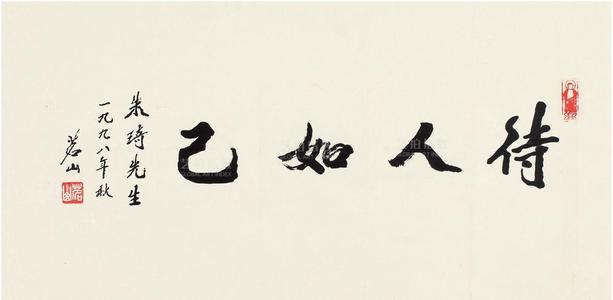 待人如己
朱琦先生
一九九八年秋
茗山